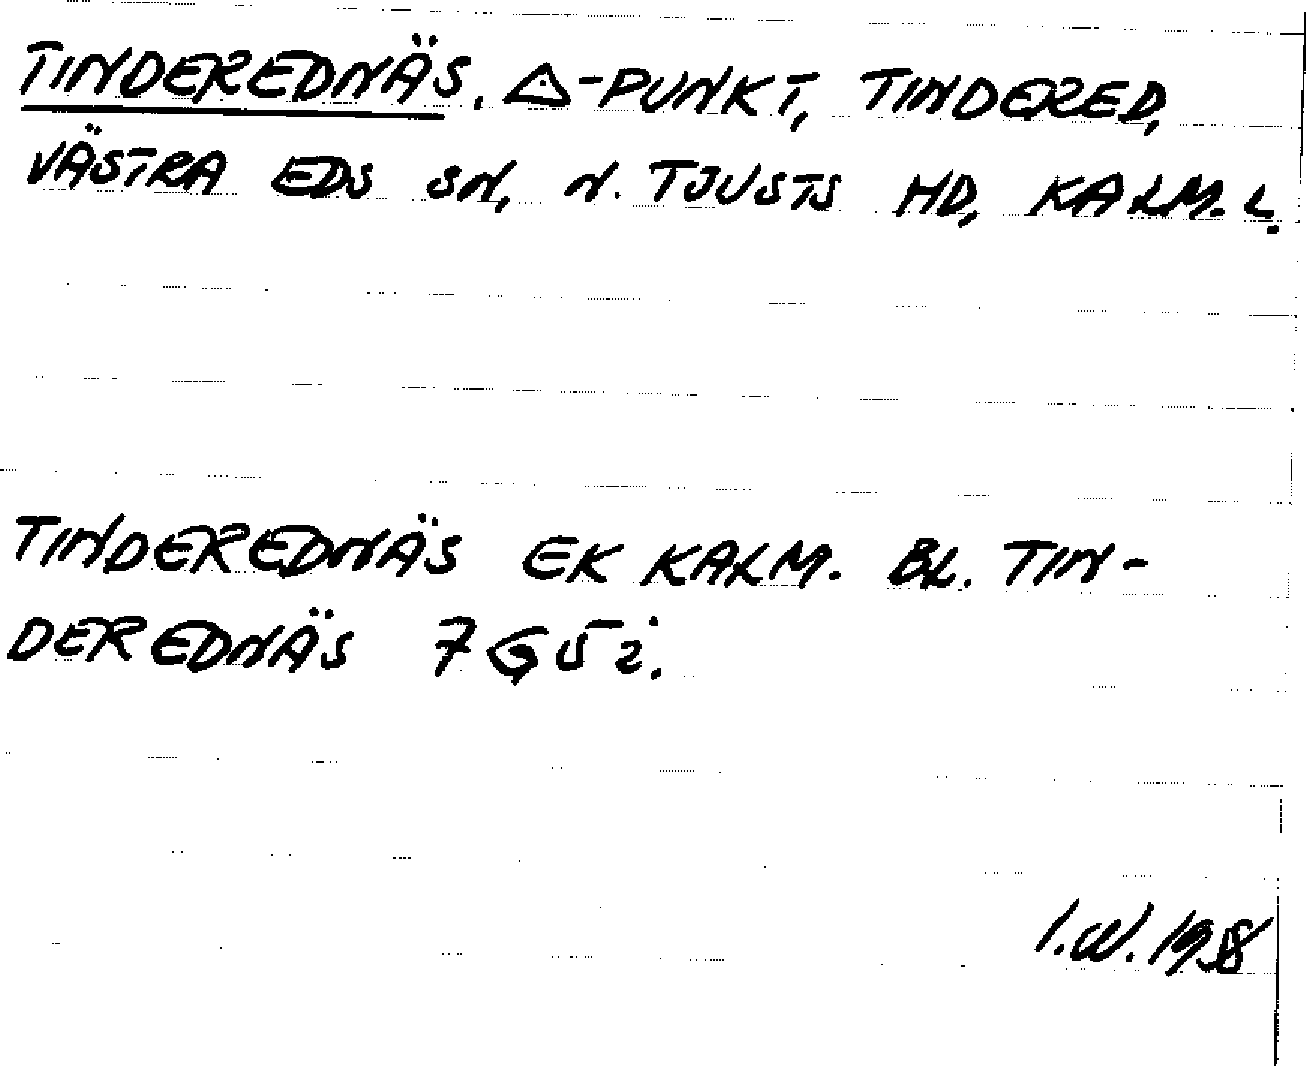 TINDEREDNÄS. △-PUNKT, TINDERED,
VÄSTRA EDS SN, N. TJUSTS HD, KALM. L.
TINDEREDNÄS EK KALM. BL. TIN-
DEREDNÄS 7G5i.
I.W. 1958